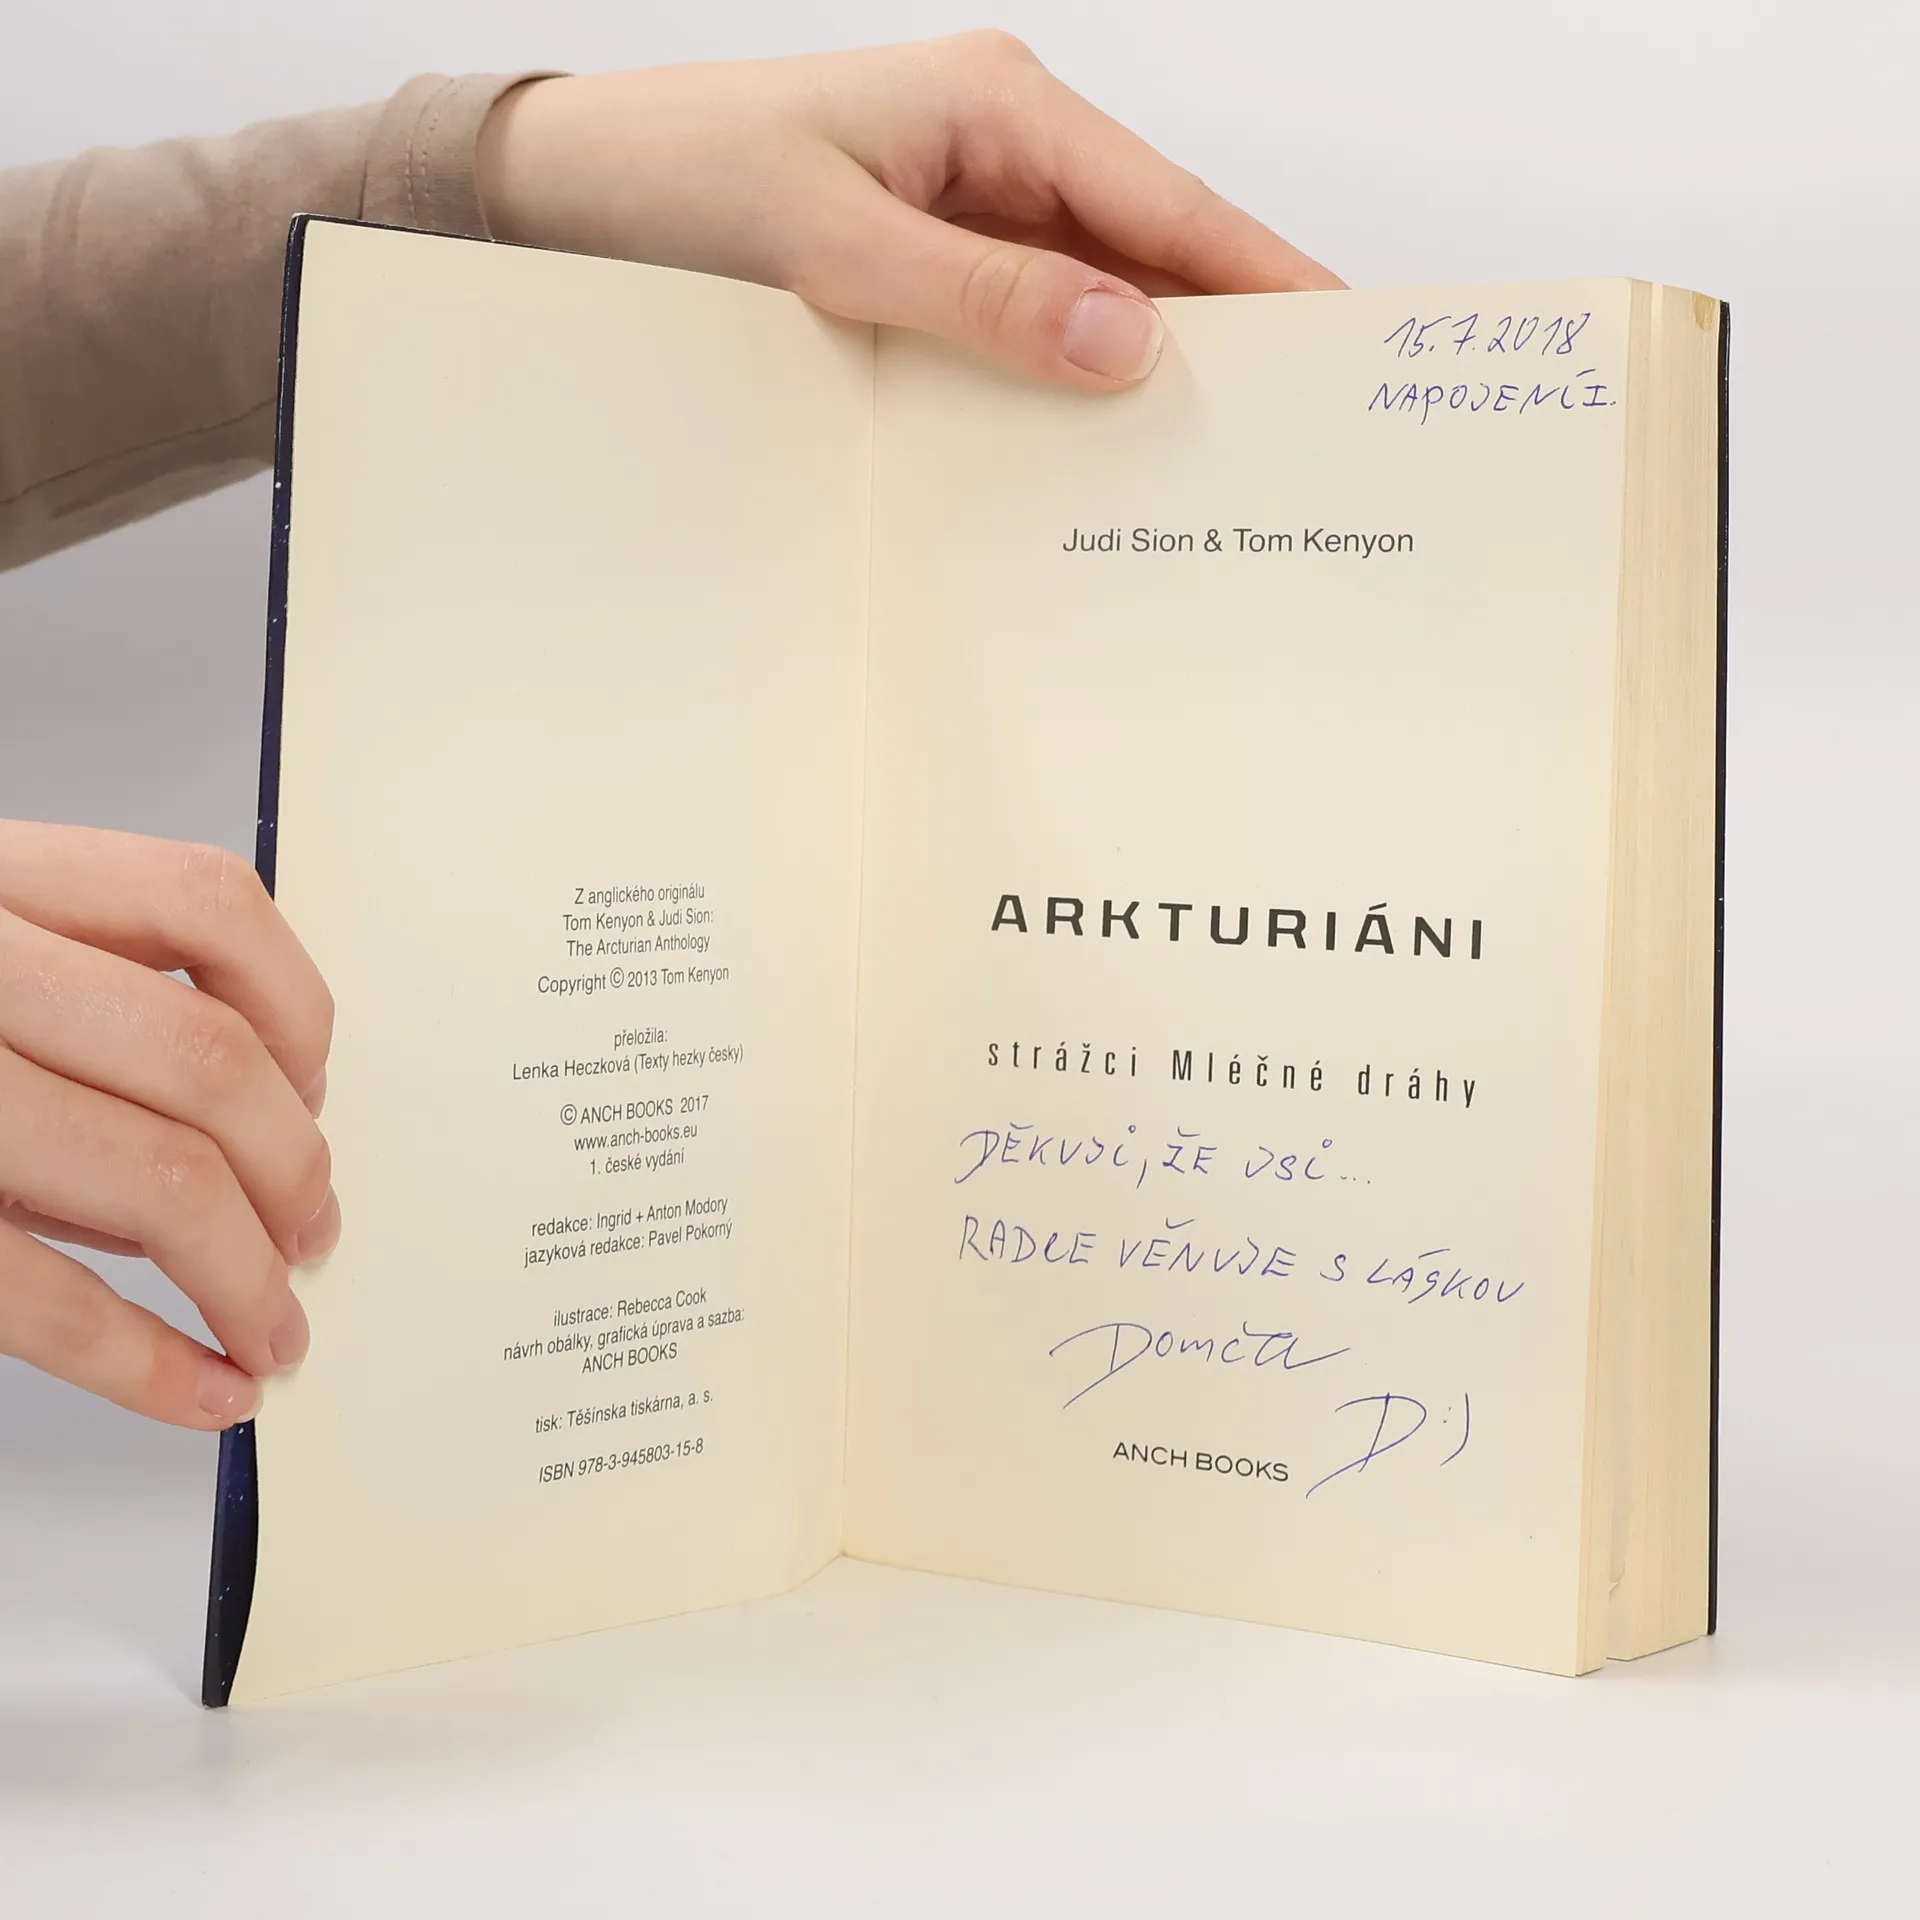 Z anglického originálu
Tom Kenyon & Judi Sion:
The Arcturian Anthology
Copyright © 2013 Tom Kenyon
přeložila:
Lenka Heczková (Texty hezky česky)
© ANCH BOOKS 2017
www.anch-books.eu
1. české vydání
redakce: Ingrid + Anton Modory
jazyková redakce: Pavel Pokorný
ilustrace: Rebecca Cook
návrh obálky, grafická úprava a sazba:
ANCH BOOKS
tisk: Těšínska tiskárna, a. s.
ISBN 978-3-945803-15-8
15.7.2018
NAPOJENÍ I.
Judi Sion & Tom Kenyon
ARKTURIÁNI
strážci Mléčné dráhy
DĚKUJI, ŽE JSI...
RADCE VĚNUJE S LÁSKOU
Domča
D :)
ANCH BOOKS